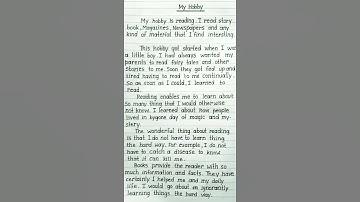 My Hobby
My hobby is reading. I read story
book, Magazines, Newspapers and any
kind of material that I find intersting.
This hobby got started when I was
a little boy. I had always wanted my
parents to read fairy tales and other
Stories to me. Soon they got fed up and
tired having to read to me continually.
So as soon as I could, I learned to
read.
Reading enables me to learn about
so many thing that I would otherwise
not know. I learned about how people
lived in bygone day of magic and my-
stery.
The wonderful thing about reading
is that I do not have to learn thing
the hard way. For example, I do not
have to catch a disease to know
that it can kill me.
Books provide the reader with so
much information and facts. They have
certainly helped me and my daily
life. I would go about on ignorantly
learning things the hard way.